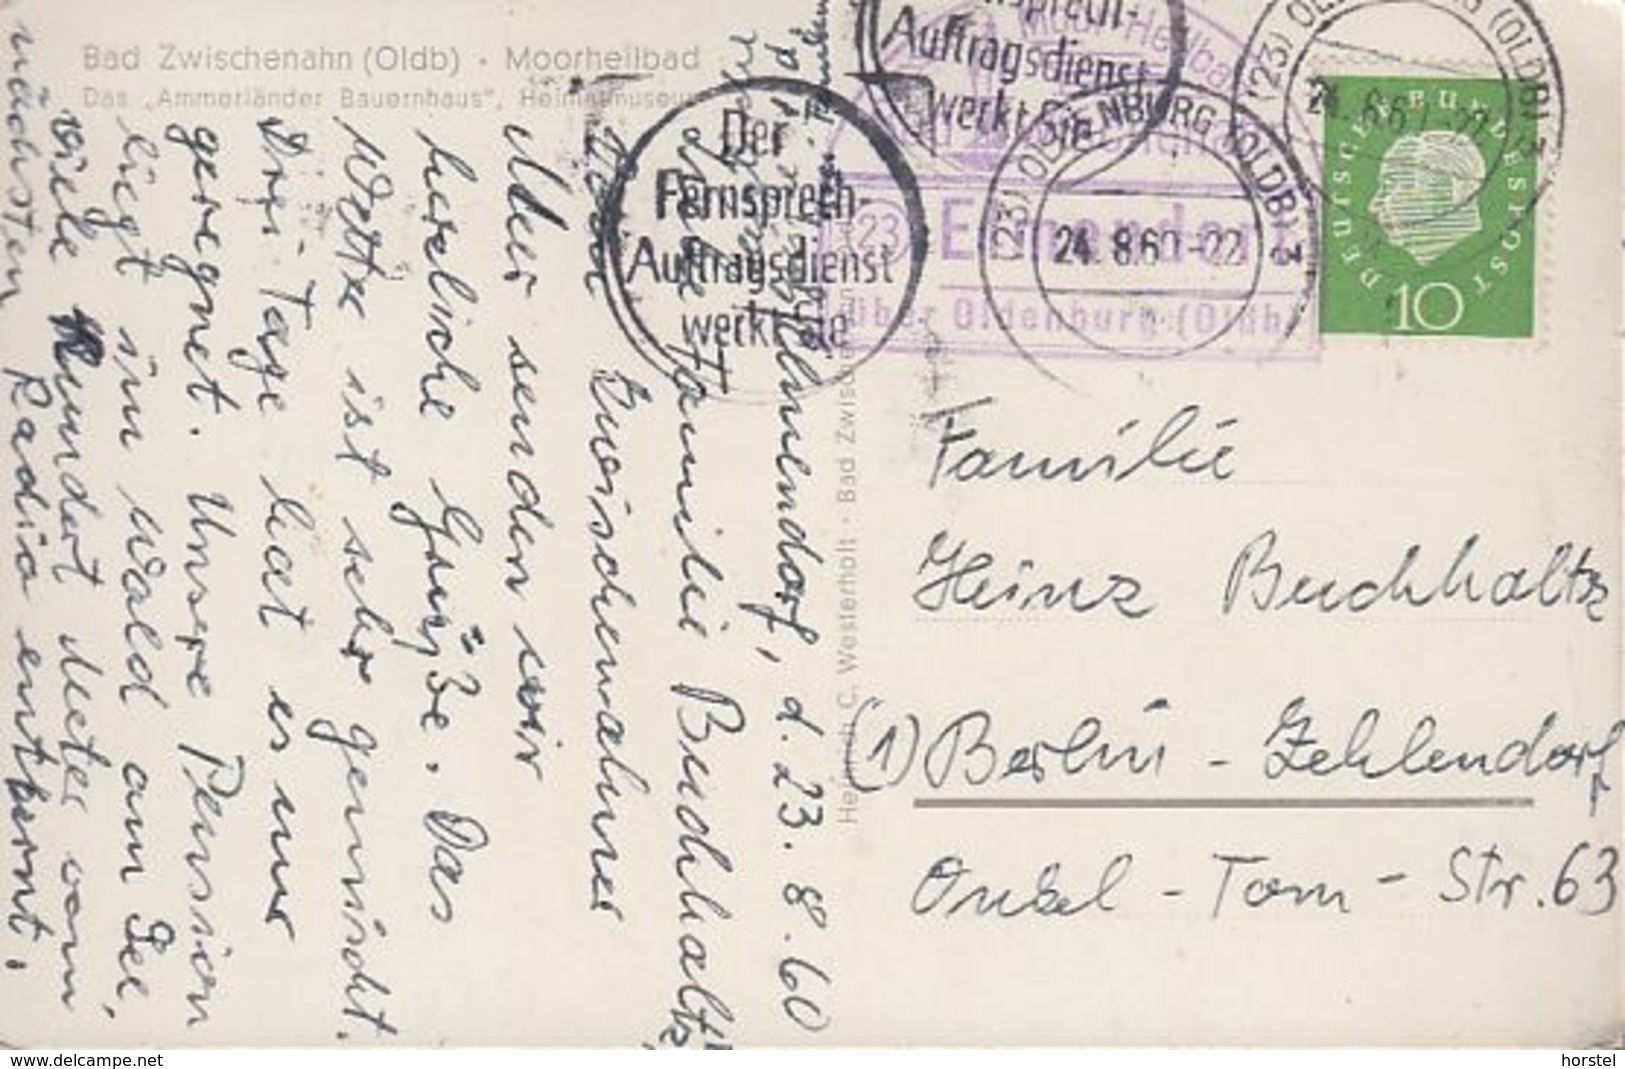 Bad Zwischenahn (Oldb) · Moorheilbad
Das „Ammerländer Bauernhaus", Heimatmuseum
Elmendorf, d. 23. 8. 60
Liebe Familie Buchholtz,
Vom Zwischenahner
Meer senden wir
herzliche Grüße. Das
Wetter ist sehr gemischt.
Drei Tage hat es nur
geregnet. Unsere Pension
liegt im Wald am See,
viele Hundert Meter vom
nächsten Radio entfernt.
Der
Fernsprech-
Auftragsdienst
werkt Sie
Auftragsdienst
werkt Sie
(23) OLDENBURG (OLDB) 3
24. 8.60-22
(23) Elmendorf
über Oldenburg (Oldb)
DEUTSCHE BUNDESPOST
10
Familie
Heinz Buchholtz
(1) Berlin - Zehlendorf
Onkel - Tom - Str. 63
www.delcampe.net
horstel